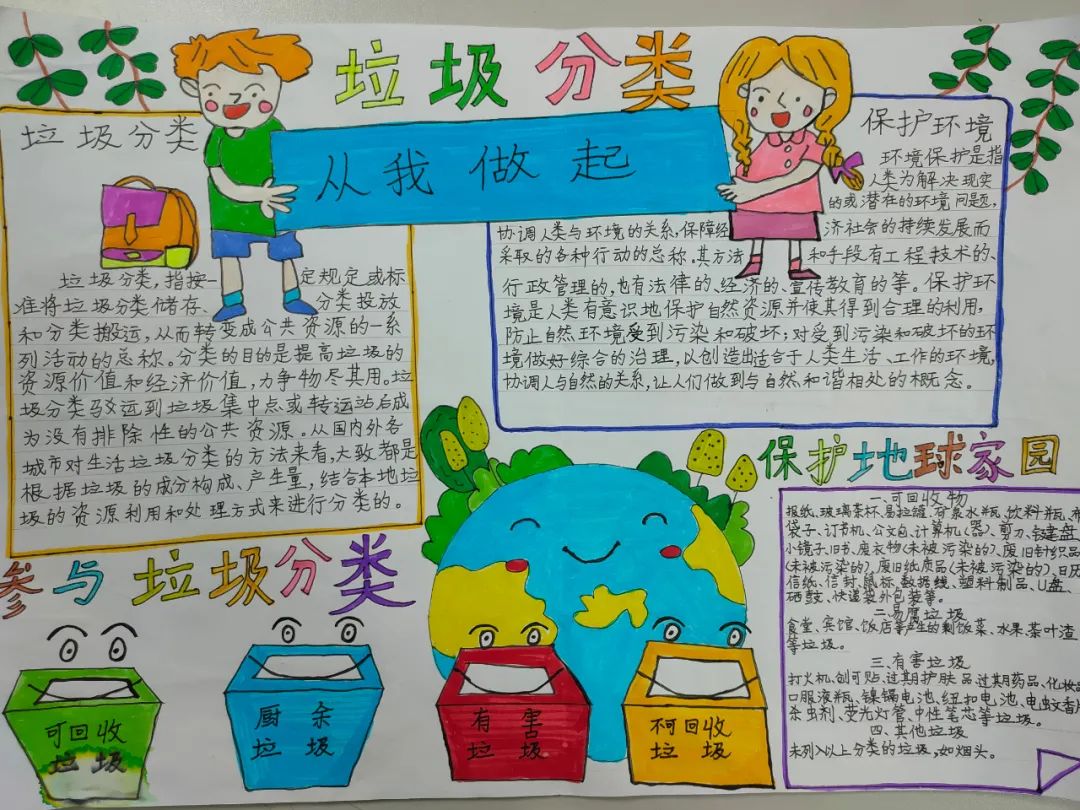 垃圾分类
从我做起
垃圾分类
垃圾分类,指按一定规定或标
准将垃圾分类储存、分类投放
和分类搬运,从而转变成公共资源的一系
列活动的总称。分类的目的是提高垃圾的
资源价值和经济价值,力争物尽其用。垃
圾分类驳运到垃圾集中点或转运站后成
为没有排除性的公共资源。从国内外各
城市对生活垃圾分类的方法来看,大致都是
根据垃圾的成分构成、产生量,结合本地垃
圾的资源利用和处理方式来进行分类的。
保护环境
环境保护是指
人类为解决现实
的或潜在的环境问题,
协调人类与环境的关系,保障经济社会的持续发展而
采取的各种行动的总称。其方法和手段有工程技术的、
行政管理的,也有法律的、经济的、宣传教育的等。保护环
境是人类有意识地保护自然资源并使其得到合理的利用,
防止自然环境受到污染和破坏;对受到污染和破坏的环
境做好综合的治理,以创造出适合于人类生活、工作的环境,
协调人与自然的关系,让人们做到与自然和谐相处的概念。
参与垃圾分类
可回收
垃圾
厨余
垃圾
有害
垃圾
不可回收
垃圾
保护地球家园
一、可回收物
报纸、玻璃茶杯、易拉罐、矿泉水瓶、饮料瓶、布
袋子、订书机、公文包、计算机(器)、剪刀、键盘
小镜子、旧书、废衣物(未被污染的)、废旧针织品
(未被污染的)、废旧纸质品(未被污染的)、日历
信纸、信封、鼠标、数据线、塑料制品、U盘、
硒鼓、快递袋外包装等。
二、易腐垃圾
食堂、宾馆、饭店等产生的剩饭菜、水果、茶叶渣
等垃圾。
三、有害垃圾
打火机、创可贴、过期护肤品、过期药品、化妆品
口服液瓶、镍镉电池、纽扣电池、电蚊香片
杀虫剂、荧光灯管、中性笔芯等垃圾。
四、其他垃圾
未列入以上分类的垃圾,如烟头。